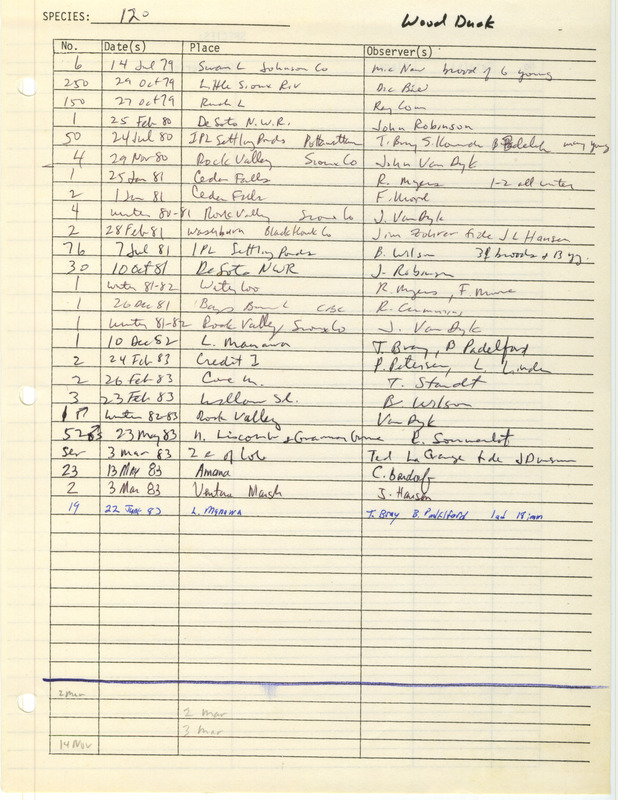 SPECIES: 120 Wood Duck
No. Date(s) Place Observer(s)
6 14 Jul 79 Swan L Johnson Co brood of 6 young
250 29 Oct 79 Little Sioux Riv Dic Bier
150 27 Oct 79 Rush L Ray
1 25 Feb 80 DeSoto N.W.R. John Robinson
50 24 Jul 80 IPL Settling Ponds T. Bray many young
4 29 Nov 80 Rock Valley Sioux Co John Van Dyk
1 25 Jan 81 Cedar Falls R. Myers 1-2 all winter
2 1 Jan 81 Cedar Falls F. Moore
4 winter 80-81 Rock Valley Sioux Co J. Van Dyk
2 28 Feb 81 Washburn Black Hawk Co Jim fide J L Hansen
76 7 Jul 81 IPL Settling Ponds B. Wilson broods
30 10 Oct 81 DeSoto NWR J. Robinson
1 winter 81-82 Waterloo R. Myers, F. Moore
1 26 Dec 81 CBC R.
1 winter 81-82 Rock Valley, Sioux Co J. Van Dyk
1 10 Dec 82 L. Manawa T. Bray, B Padelford
2 24 Feb 83 Credit I P. Petersen, L. Linden
2 26 Feb 83 T. Staudt
3 23 Feb 83 Willow Sl. B. Wilson
1 winter 82-83 Rock Valley Van Dyk
23 May 83 N. Liscomb
3 Mar 83 Ted LaGrange fide J Dinsmore
23 13 Mar 83 Amana C. Bendorf
2 3 Mar 83 Ventura Marsh J. Hansen
19 22 83 L. Manawa T. Bray B. Padelford
2 Mar
2 mar
3 mar
14 Nov